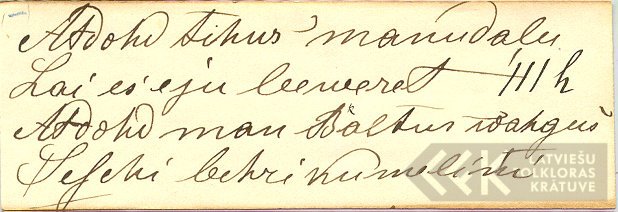 Atdohd tihrus' manu dalu
Lai es eju leeweret 111 h
Atdohd man Baltus wahgus
Seschi behri kumelini
LATVIEŠU
FOLKLORAS
KRĀTUVE